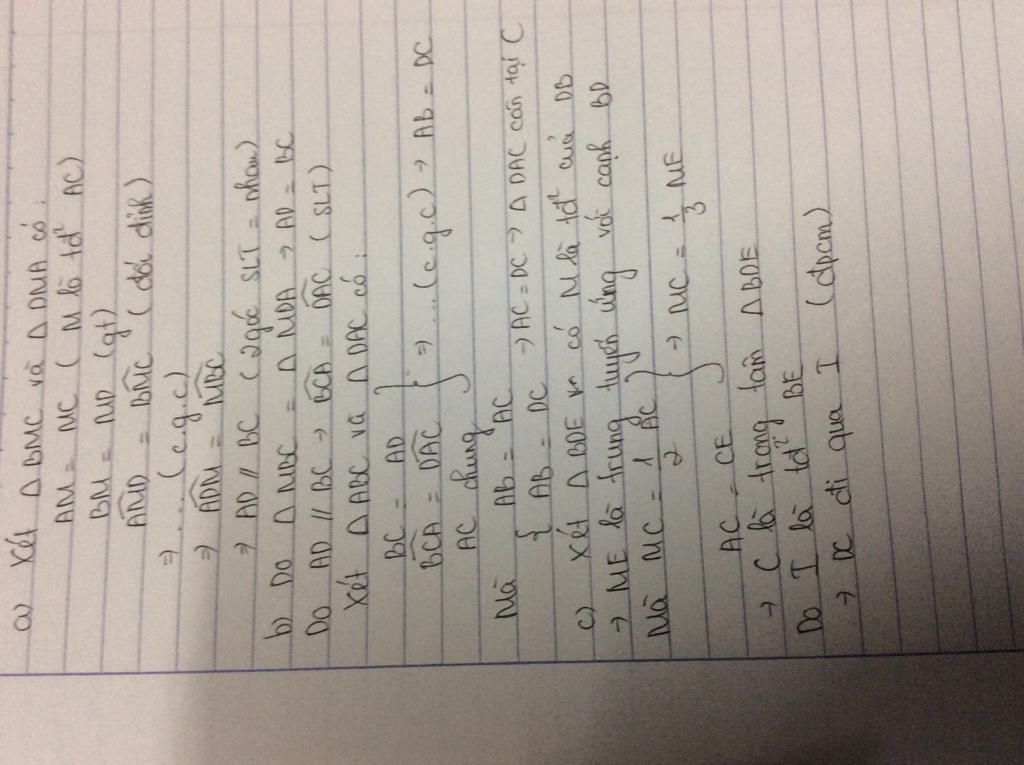 a) Xét △BMC và △DMA có:
AM = MC (M là tđ² AC)
BM = MD (gt)
AMD = BMC (đối đỉnh)
⇒ ... (c.g.c)
⇒ ADM = MBC
⇒ AD // BC (2 góc SLT = nhau)
b) Do △MBC = △MDA → AD = BC
Do AD // BC → BCA = DAC (SLT)
Xét △ABC và △DAC có:
BC = AD
BCA = DAC } ⇒ ... (c.g.c) → AB = DC
AC chung
Mà { AB = AC
AB = DC → AC = DC → △DAC cân tại C
c) Xét △BDE có M là tđ² của DB
→ ME là trung tuyến ứng với cạnh BD
Mà MC = 1/2 AC } → MC = 1/3 ME
AC = CE
→ C là trọng tâm △BDE
Do I là tđ² BE
→ DC đi qua I (đpcm)